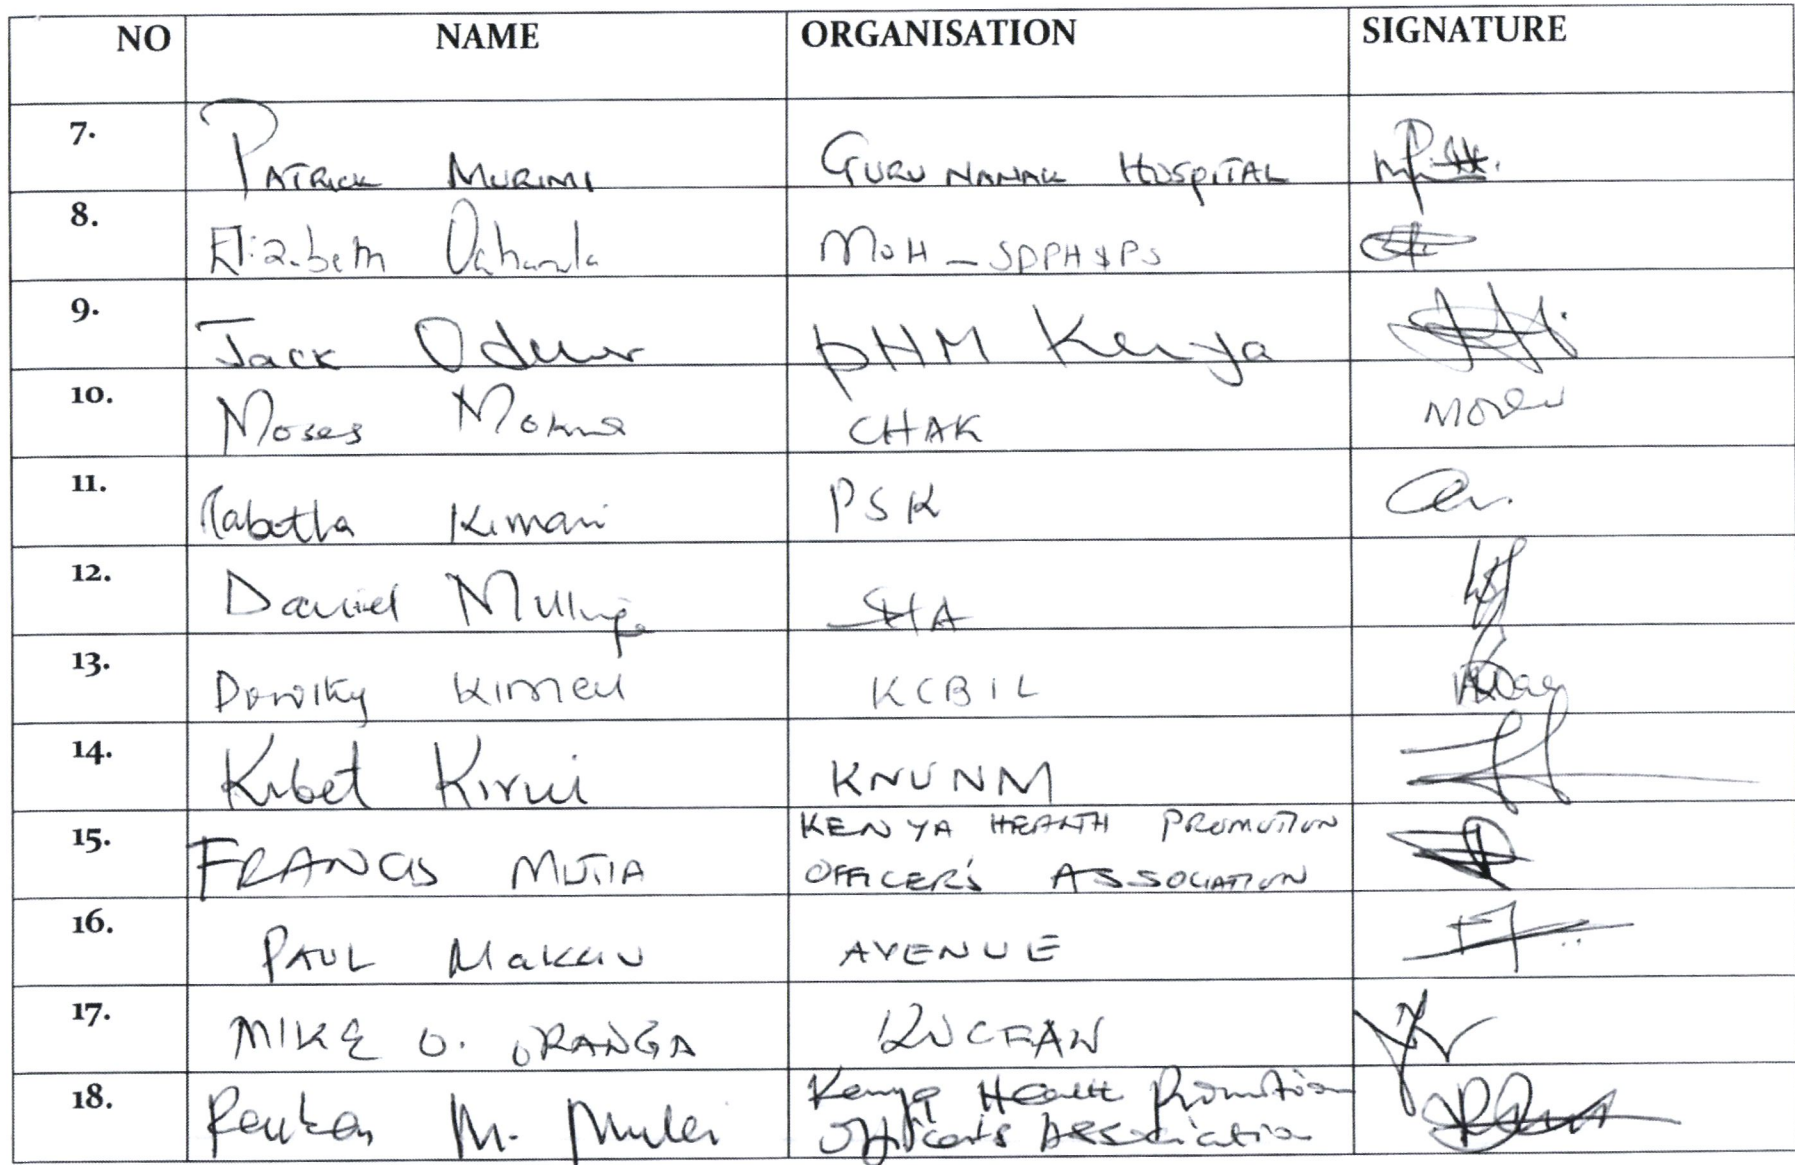 NO NAME ORGANISATION SIGNATURE
7. PATRICK MURIMI GURU NANAK HOSPITAL
8. Elizabeth MOH - SDPH&PS
9. Jack PHM Kenya
10. Moses CHAK
11. Tabatha Kimani PSK
12. Daniel SHA
13. Dorothy Kimeu KCBIL
14. Kibet Kirui KNUNM
15. FRANCIS MUTIA KENYA HEALTH PROMOTION
OFFICER'S ASSOCIATION
16. PAUL AVENUE
17. MIKE O. ORANGA
18. Reuben M. Mulei Kenya Health Promotion
Officers Association